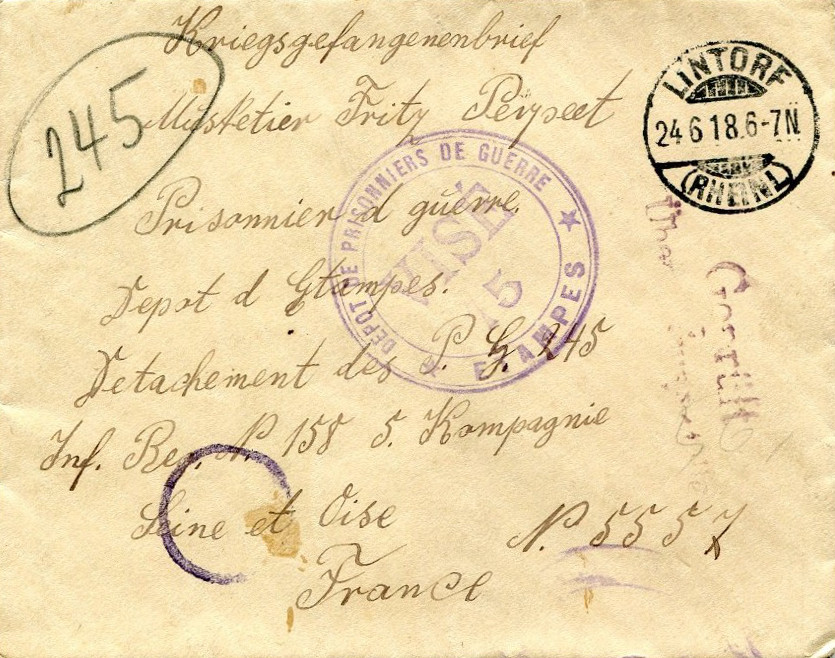 Kriegsgefangenenbrief
245
Musketier Fritz Perpeet
LINTORF
24 6 18.6-7N
(RHEINL)
DEPOT DE PRISONNIERS DE GUERRE ★ ETAMPES ★
VISÉ
15
Prisonnier d guerre.
Depot d Etampes.
Detachement des P. G. 245
Inf. Reg. N. 158 5. Kompagnie
Seine et Oise
N. 5557
France
Geprüft